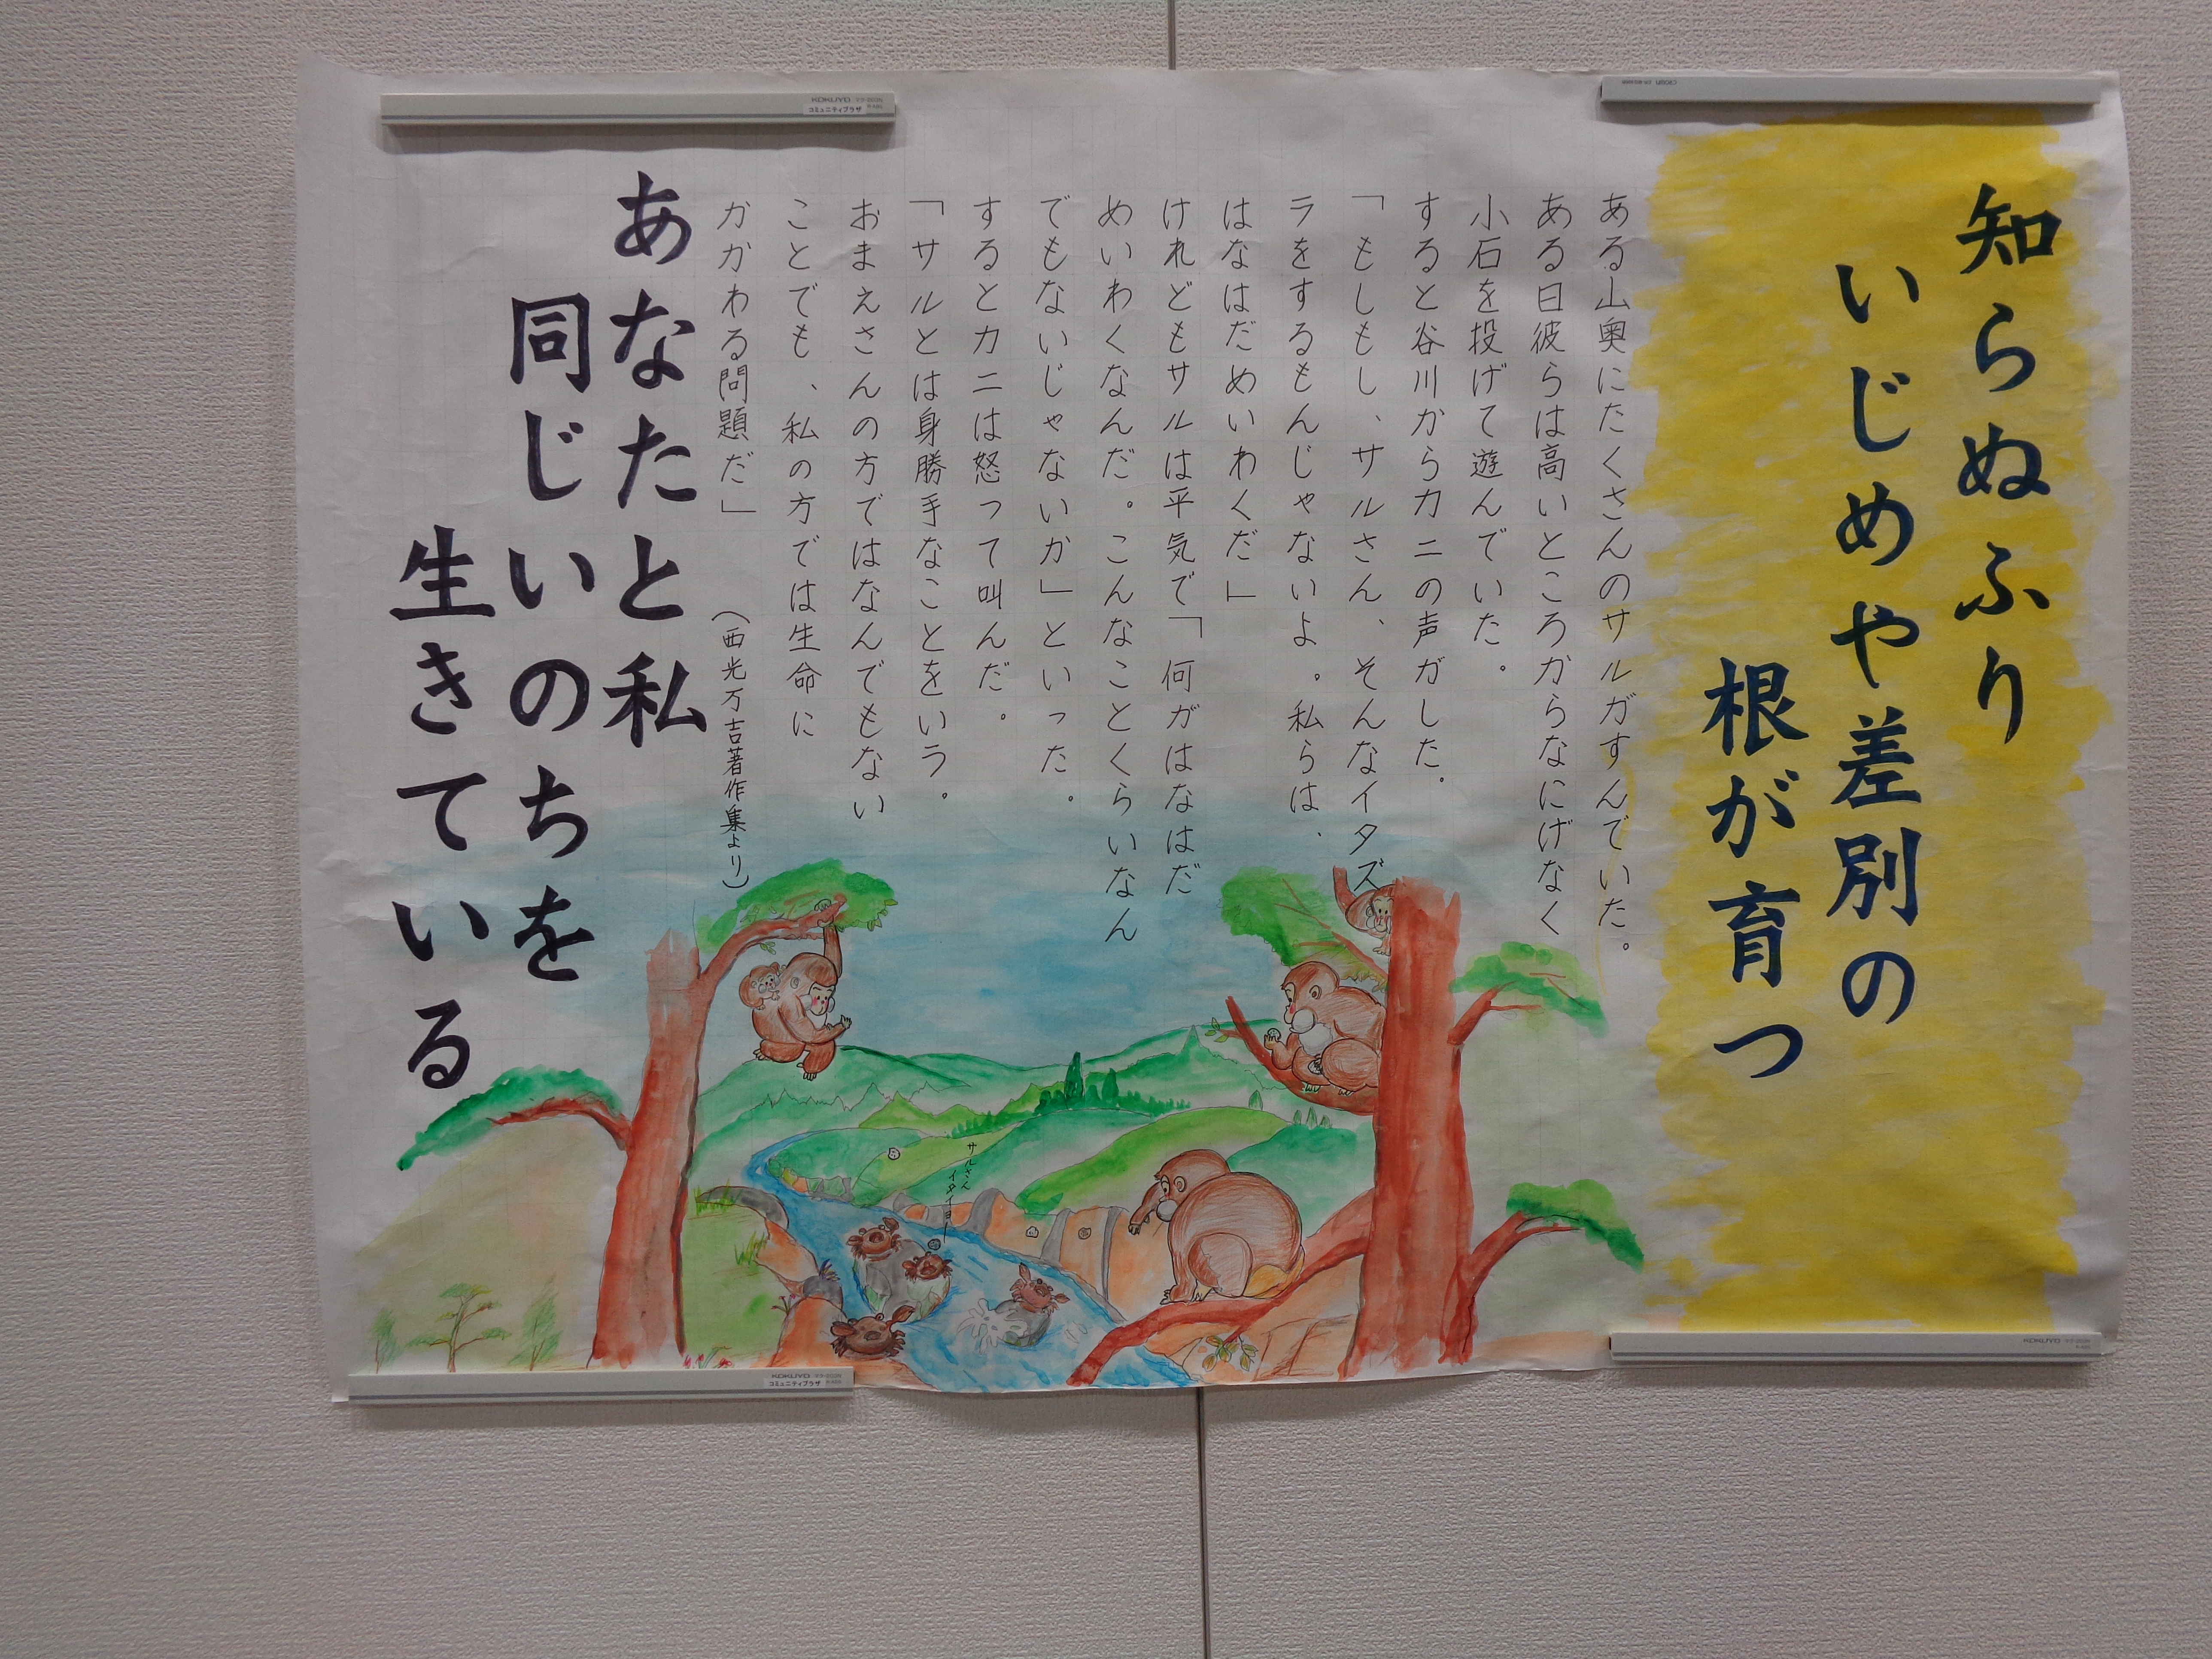 知らぬふり
いじめや差別の
根が育つ
ある山奥にたくさんのサルガすんでいた。
ある日彼らは高いところからなにげなく
小石を投げて遊んでいた。
すると谷川からカニの声がした。
「もしもし、サルさん、そんなイタズ
ラをするもんじゃないよ。私らは、
はなはだめいわくだ」
けれどもサルは平気で「何がはなはだ
めいわくなんだ。こんなことくらいなん
でもないじゃないか」といった。
するとカニは怒って叫んだ。
「サルとは身勝手なことをいラ。
おまえさんの方ではなんでもない
ことでも、私の方では生命に
かかわる問題だ」
(西光万吉著作集より)
あなたと私
同じいのちを
生きている
サルさん
イタイヨー
KOKUYO
コミュニティプラザ
KOKUYO
コミュニティプラザ
KOKUYO